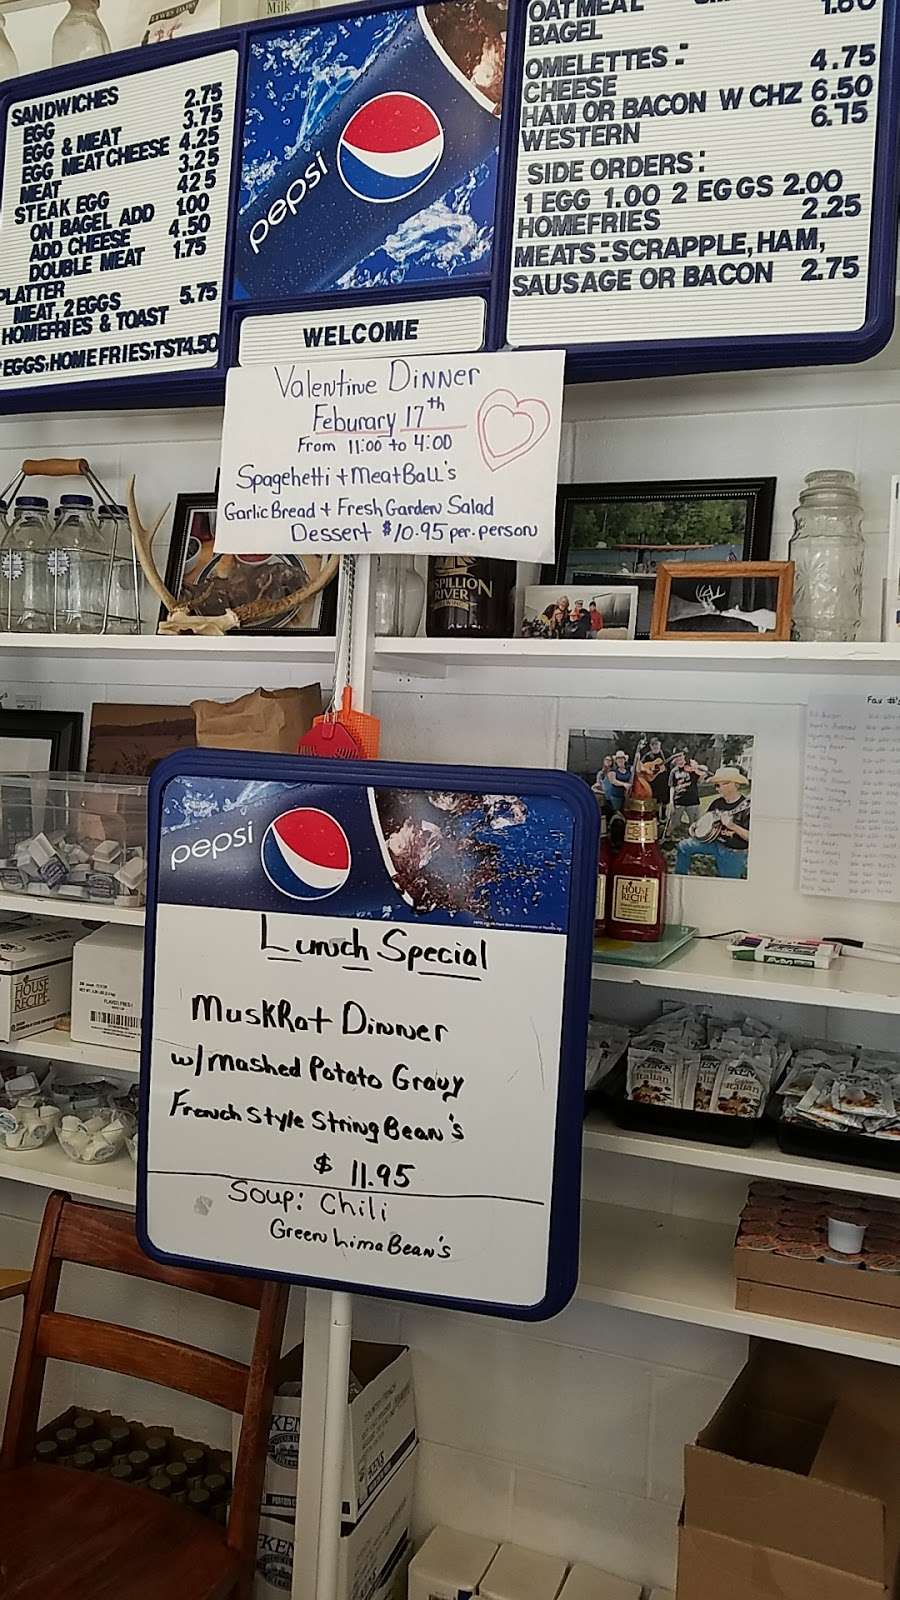 SANDWICHES
EGG 2.75
EGG & MEAT 3.75
EGG MEAT CHEESE 4.25
MEAT 3.25
STEAK EGG 425
ON BAGEL ADD 1.00
ADD CHEESE 4.50
DOUBLE MEAT 1.75
PLATTER
MEAT, 2 EGGS 5.75
HOMEFRIES & TOAST
EGGS, HOMEFRIES, TST 4.50
pepsi
WELCOME
OATMEAL 1.60
BAGEL
OMELETTES :
CHEESE 4.75
HAM OR BACON W CHZ 6.50
WESTERN 6.75
SIDE ORDERS :
1 EGG 1.00 2 EGGS 2.00
HOMEFRIES 2.25
MEATS : SCRAPPLE, HAM,
SAUSAGE OR BACON 2.75
Valentine Dinner
Feburary 17th
From 11:00 to 4:00
Spagehetti + MeatBall's
Garlic Bread + Fresh Garden Salad
Dessert $10.95 per.person
RIVER
pepsi
Lunch Special
MuskRat Dinner
w/ Mashed Potato Gravy
French Style String Bean's
$ 11.95
Soup: Chili
Green Lima Bean's
HOUSE
RECIPE
HOUSE
RECIPE
KEN'S
Italian